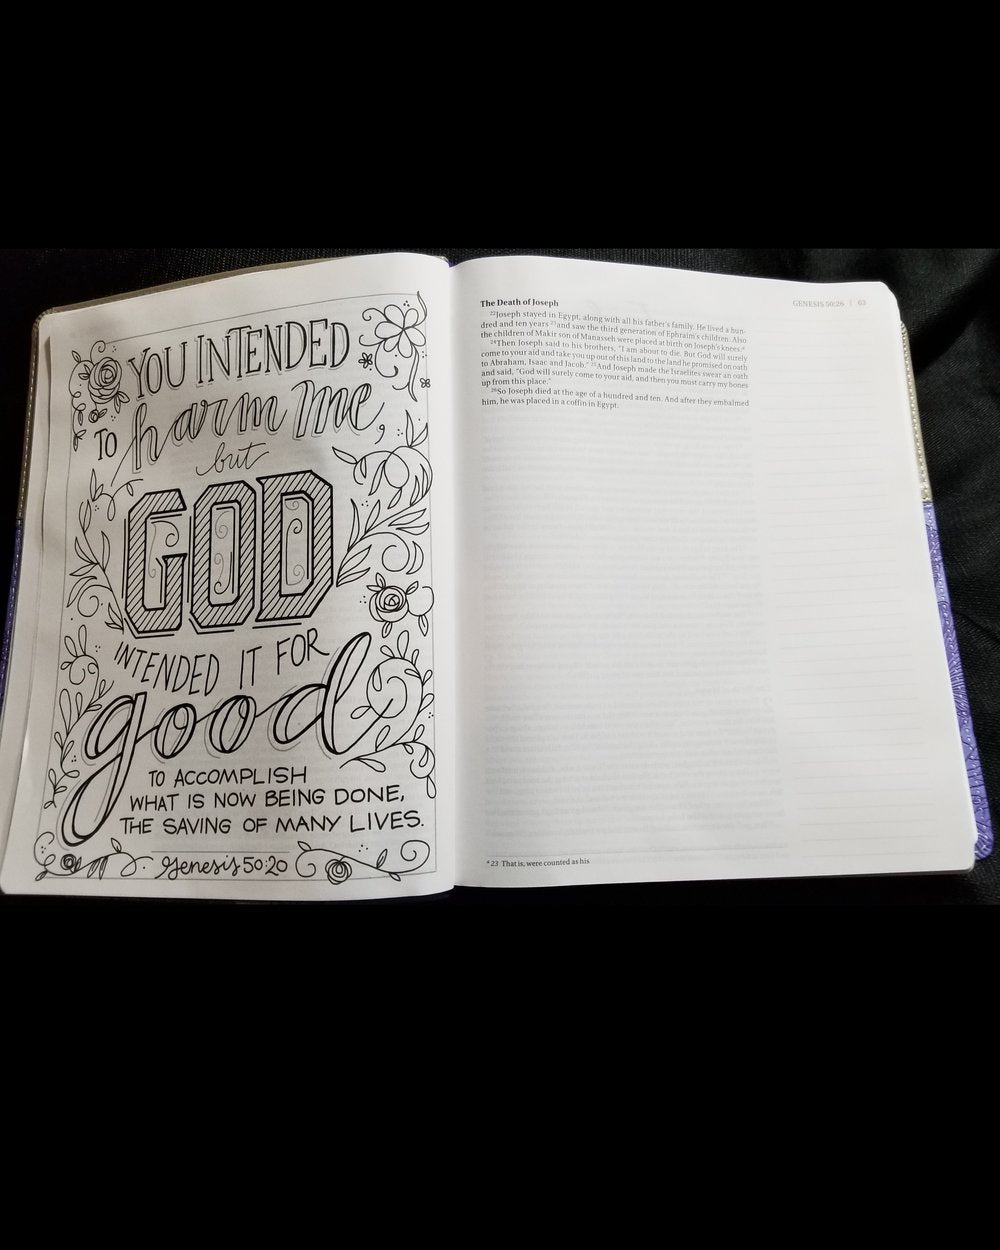 YOU INTENDED
TO harm me,
but
GOD
INTENDED IT FOR
good
TO ACCOMPLISH
WHAT IS NOW BEING DONE,
THE SAVING OF MANY LIVES.
Genesis 50:20
GENESIS 50:26 | 63
The Death of Joseph
22Joseph stayed in Egypt, along with all his father's family. He lived a hun-
dred and ten years 23and saw the third generation of Ephraim's children. Also
the children of Makir son of Manasseh were placed at birth on Joseph's knees.a
24Then Joseph said to his brothers, "I am about to die. But God will surely
come to your aid and take you up out of this land to the land he promised on oath
to Abraham, Isaac and Jacob." 25And Joseph made the Israelites swear an oath
and said, "God will surely come to your aid, and then you must carry my bones
up from this place."
26So Joseph died at the age of a hundred and ten. And after they embalmed
him, he was placed in a coffin in Egypt.
a 23 That is, were counted as his